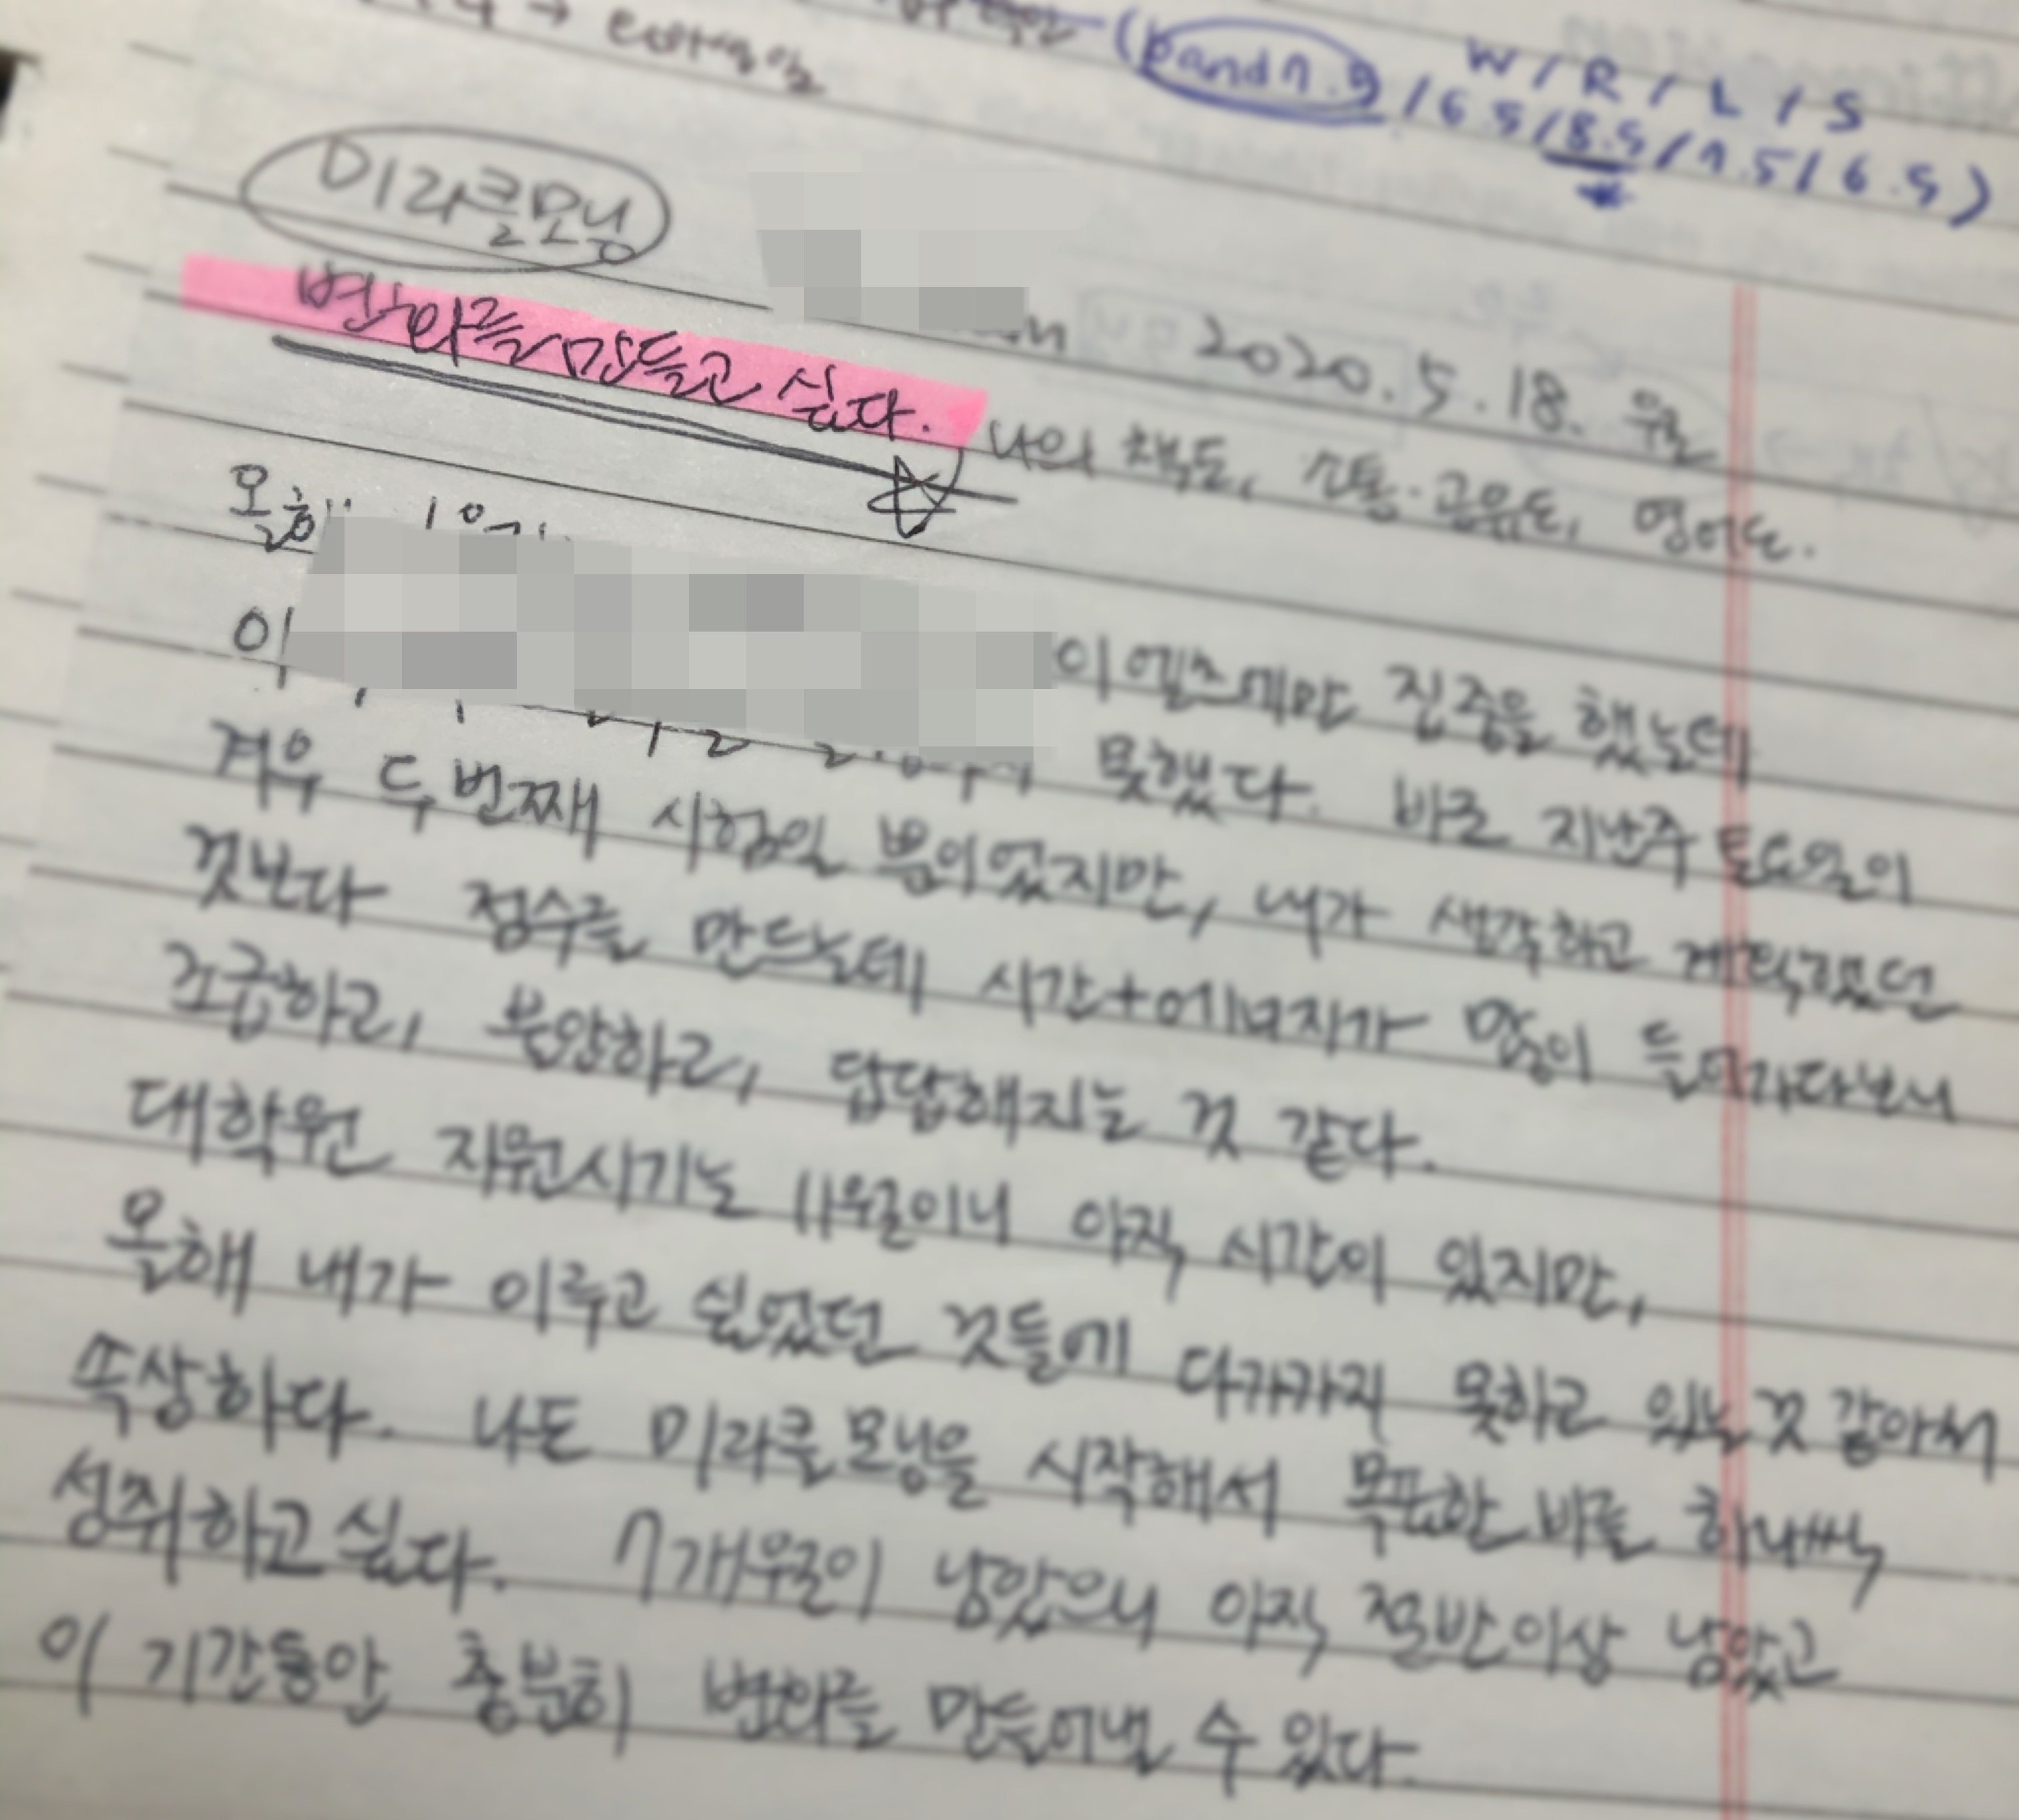 W / R / L / S
(band 7.5 / 6.5 / 8.5 / 7.5 / 6.5)
미라클모닝
2020. 5. 18. 월
변화를 만들고 싶다. 나의 책도, 소통·공유도, 영어도.
올해
이엘츠에만 집중을 했는데
못했다. 바로 지난주 토요일이
겨우 두번째 시험일 뿐이었지만, 내가 생각하고 계획했던
것보다 점수를 만드는데 시간+에너지가 많이 들어가다보니
조급하고, 불안하고, 답답해지는 것 같다.
대학원 지원시기는 11월이니 아직 시간이 있지만,
올해 내가 이루고 싶었던 것들에 다가가지 못하고 있는것 같아서
속상하다. 나도 미라클모닝을 시작해서 목표한 바를 하나씩
성취하고싶다. 7개월이 남았으니 아직 절반이상 남았고
이 기간동안 충분히 변화를 만들어낼 수 있다.